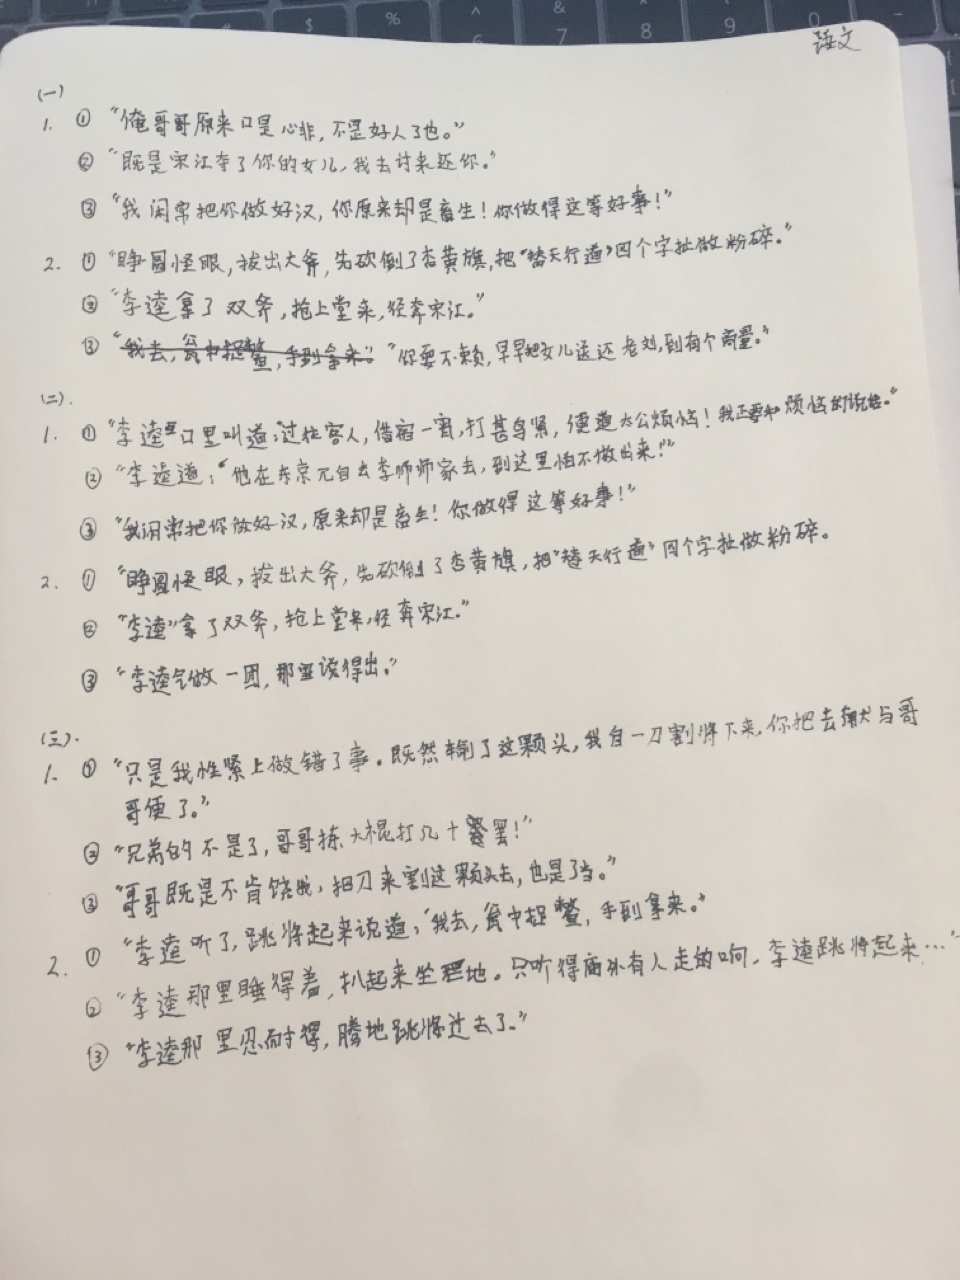 语文
(一)
1. ① "俺哥哥原来口是心非,不是好人了也。"
② "既是宋江夺了你的女儿,我去讨来还你。"
③ "我闲常把你做好汉,你原来却是畜生!你做得这等好事!"
2. ① "睁圆怪眼,拔出大斧,先砍倒了杏黄旗,把"替天行道"四个字扯做粉碎。"
② "李逵拿了双斧,抢上堂来,径奔宋江。"
③ "我去,瓮中捉鳖,手到拿来。" "你要不赖,早早把女儿送还老刘,到有个商量。"
(二).
1. ① "李逵口里叫道:过往客人,借宿一宵,打甚鸟紧,便道太公烦恼!我正要和烦恼的说话。"
② "李逵道:"他在东京兀自去李师师家去,到这里怕不做出来!"
③ "我闲常把你做好汉,原来却是畜生!你做得这等好事!"
2. ① "睁圆怪眼,拔出大斧,先砍倒了杏黄旗,把"替天行道"四个字扯做粉碎。
② "李逵"拿了双斧,抢上堂来,径奔宋江。"
③ "李逵气做一团,那里说得出。"
(三).
1. ① "只是我性紧上做错了事。既然输了这颗头,我自一刀割将下来,你把去献与哥
哥便了。"
② "兄弟的不是了,哥哥拣大棍打几十罢!"
③ "哥哥既是不肯饶我,把刀来割这颗头去,也是了当。"
2. ① "李逵听了,跳将起来说道,"我去,瓮中捉鳖,手到拿来。"
② "李逵那里睡得着,扒起来坐地。只听得商外有人走的响,李逵跳将起来…"
③ "李逵那里忍耐得,腾地跳将过去了。"